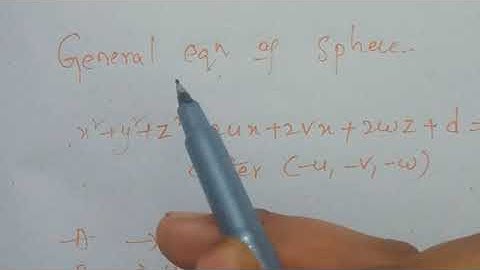 General eqn of Sphere..
x²+y²+z² 2ux+2vx+2wz+d=
(-u, -v, -w)
A →